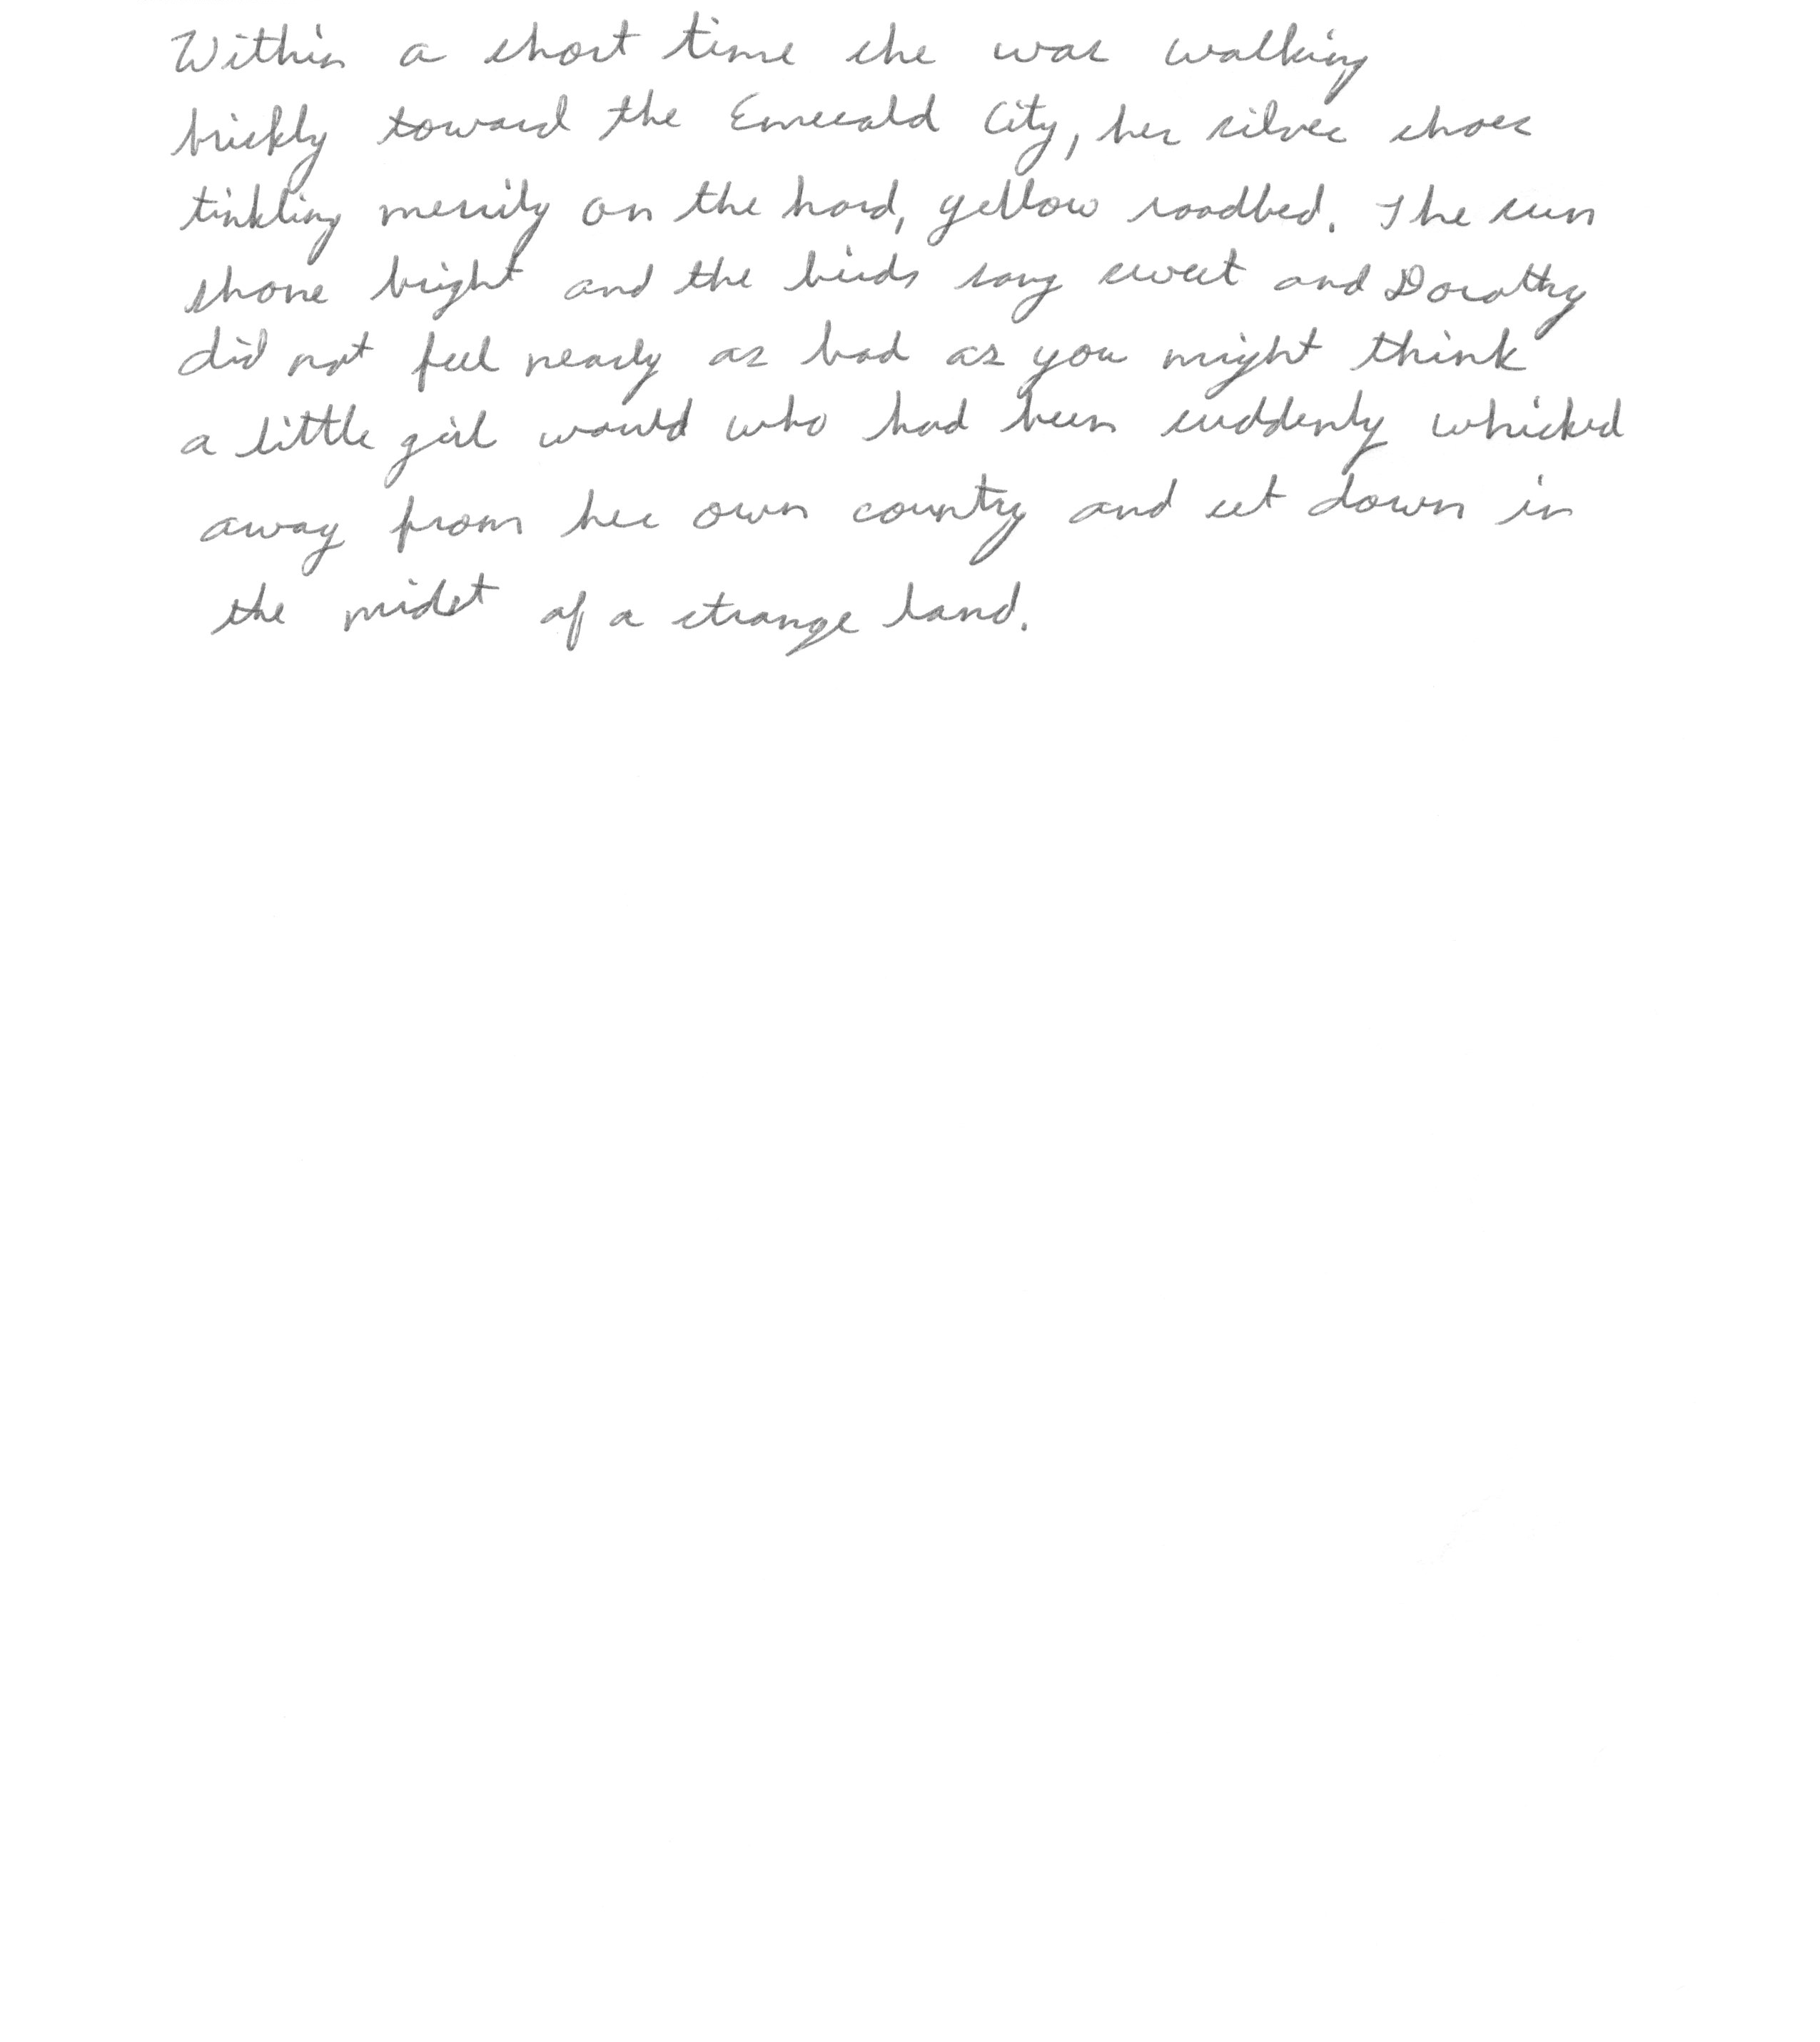 Within a short time she was walking
briskly toward the Emerald City, her silver shoes
tinkling merrily on the hard, yellow roadbed. The sun
shone bright and the birds sang sweet and Dorothy
did not feel nearly as bad as you might think
a little girl would who had been suddenly whisked
away from her own country and set down in
the midst of a strange land.